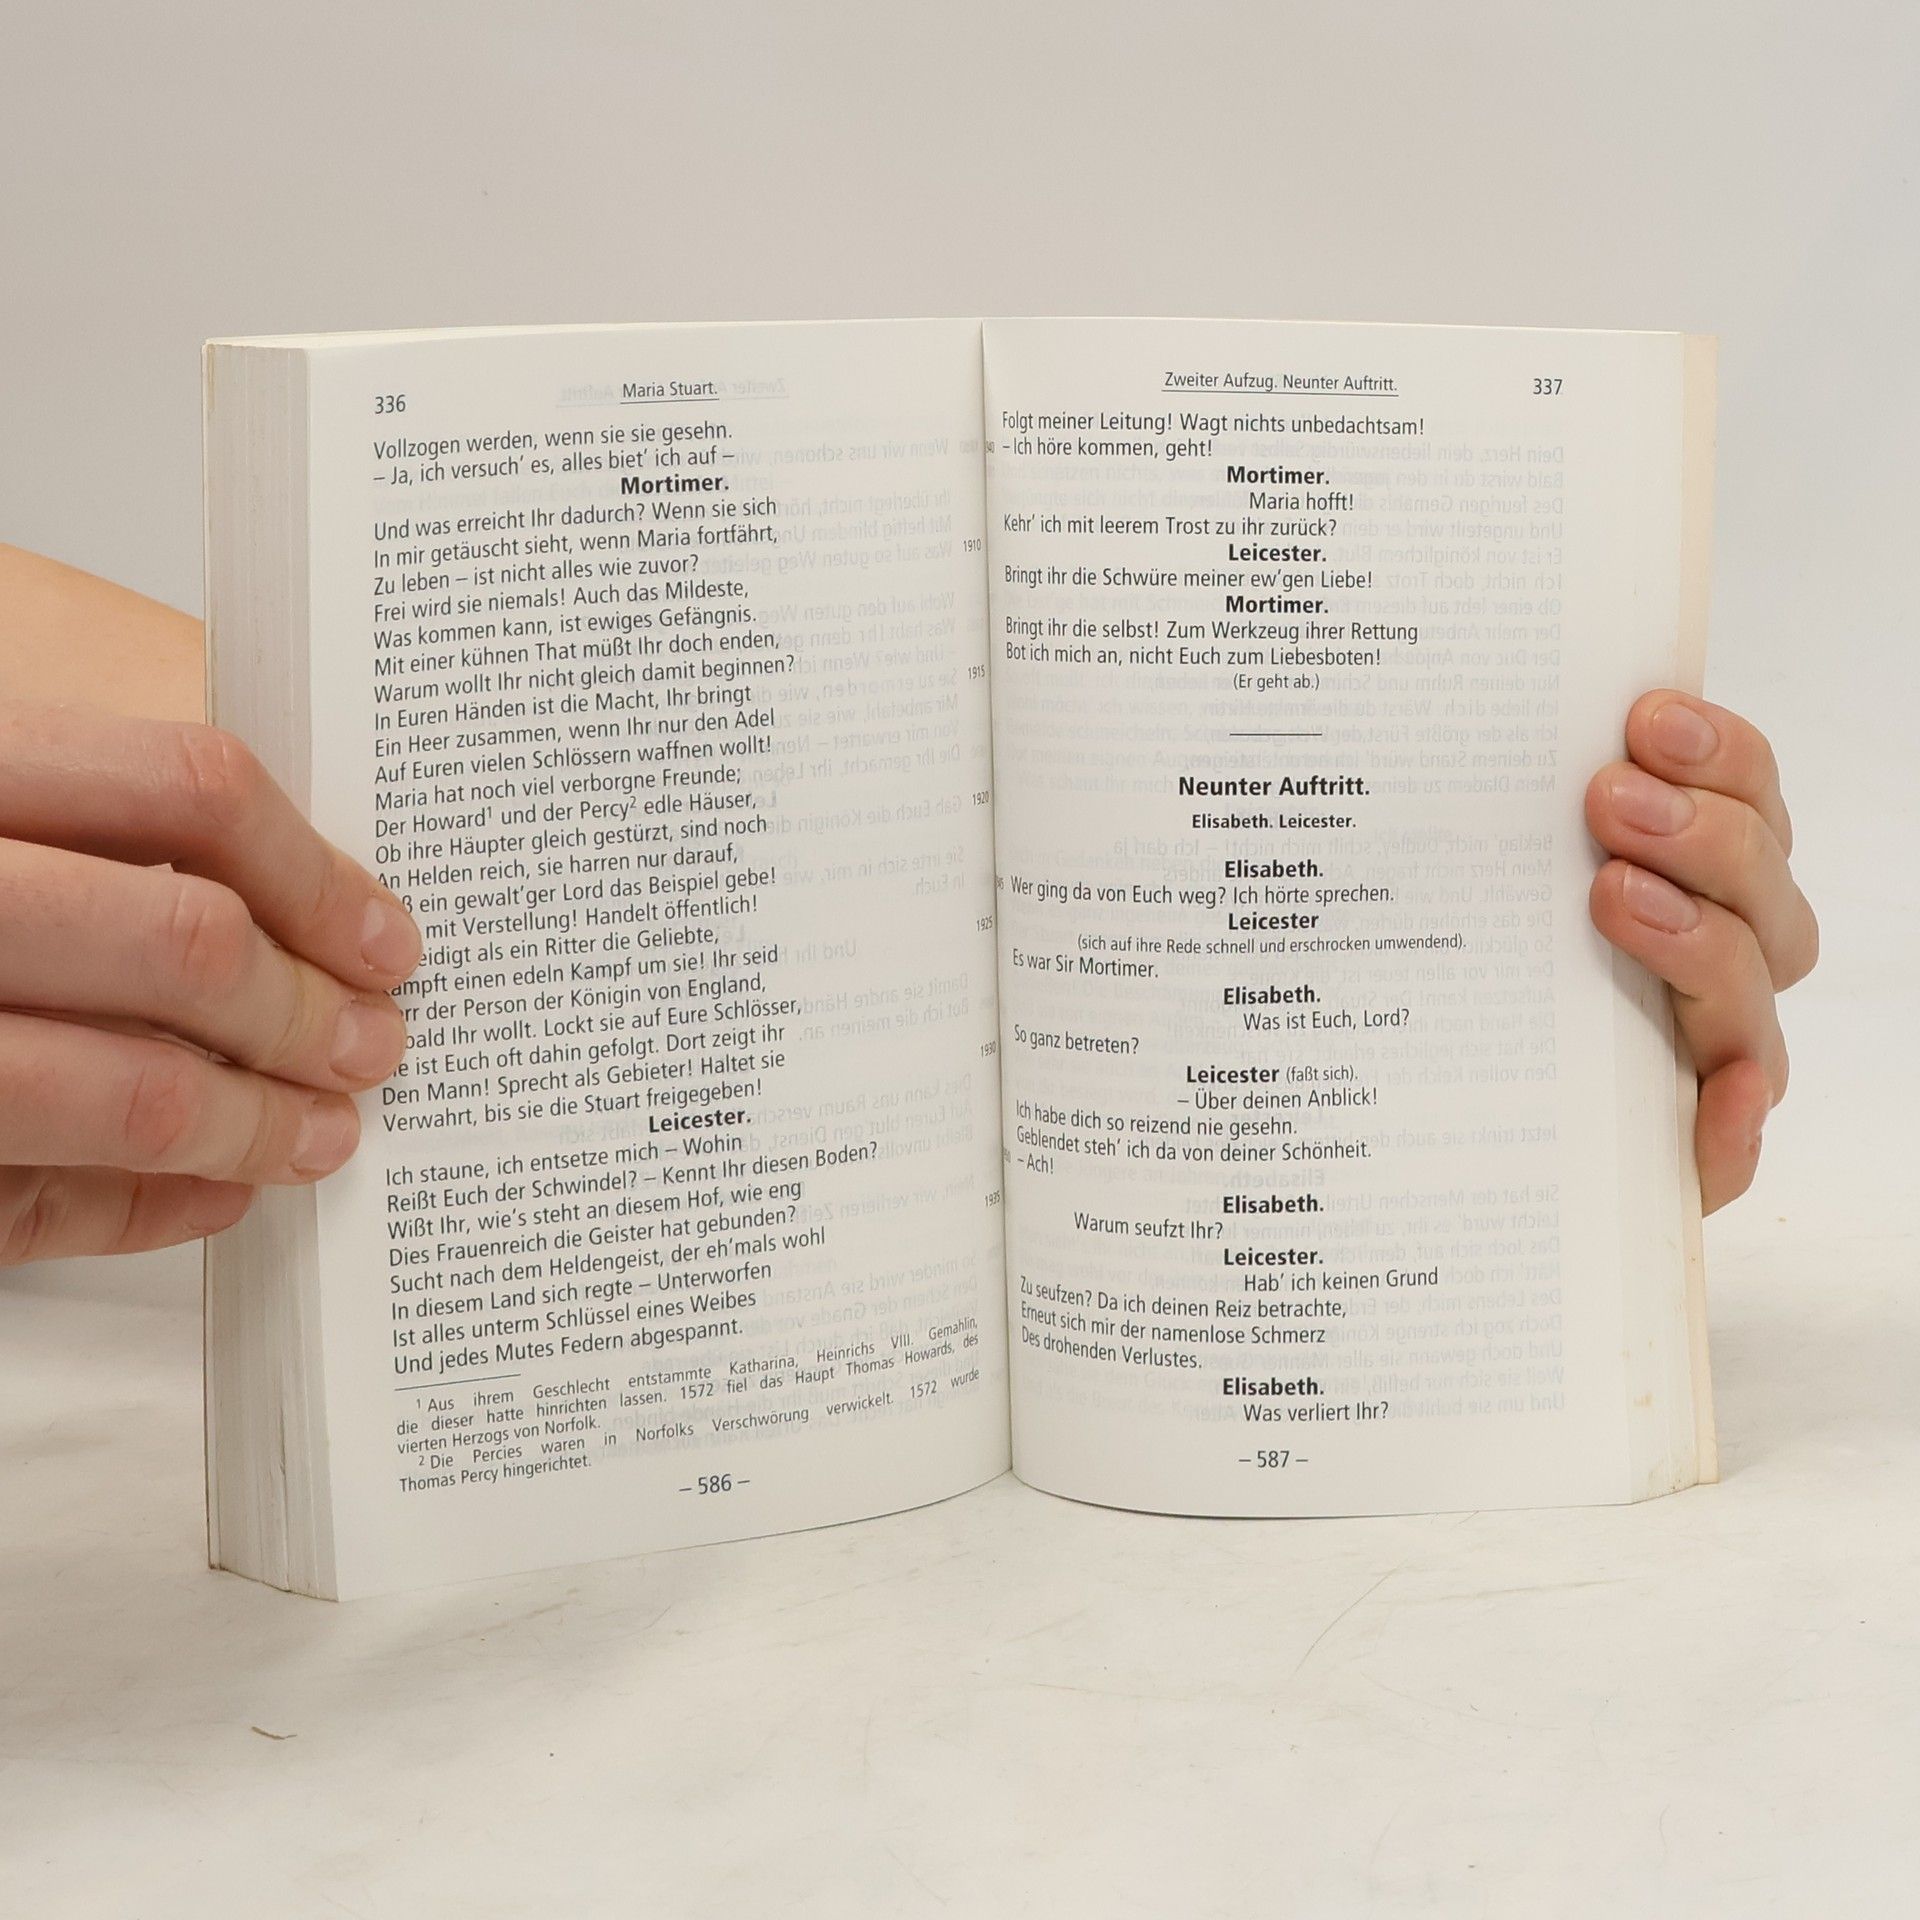 336
Maria Stuart.
Vollzogen werden, wenn sie sie gesehn.
– Ja, ich versuch’ es, alles biet’ ich auf –
Mortimer.
Und was erreicht Ihr dadurch? Wenn sie sich
In mir getäuscht sieht, wenn Maria fortfährt,
1910
Zu leben – ist nicht alles wie zuvor?
Frei wird sie niemals! Auch das Mildeste,
Was kommen kann, ist ewiges Gefängnis.
Mit einer kühnen That müßt Ihr doch enden,
Warum wollt Ihr nicht gleich damit beginnen?
1915
In Euren Händen ist die Macht, Ihr bringt
Ein Heer zusammen, wenn Ihr nur den Adel
Auf Euren vielen Schlössern waffnen wollt!
Maria hat noch viel verborgne Freunde;
Der Howard¹ und der Percy² edle Häuser,
1920
Ob ihre Häupter gleich gestürzt, sind noch
An Helden reich, sie harren nur darauf,
ein gewalt’ger Lord das Beispiel gebe!
mit Verstellung! Handelt öffentlich!
eidigt als ein Ritter die Geliebte,
1925
ämpft einen edeln Kampf um sie! Ihr seid
rr der Person der Königin von England,
bald Ihr wollt. Lockt sie auf Eure Schlösser,
ie ist Euch oft dahin gefolgt. Dort zeigt ihr
Den Mann! Sprecht als Gebieter! Haltet sie
1930
Verwahrt, bis sie die Stuart freigegeben!
Leicester.
Ich staune, ich entsetze mich – Wohin
Reißt Euch der Schwindel? – Kennt Ihr diesen Boden?
Wißt Ihr, wie’s steht an diesem Hof, wie eng
Dies Frauenreich die Geister hat gebunden?
1935
Sucht nach dem Heldengeist, der eh’mals wohl
In diesem Land sich regte – Unterworfen
Ist alles unterm Schlüssel eines Weibes
Und jedes Mutes Federn abgespannt.
¹ Aus ihrem Geschlecht entstammte Katharina, Heinrichs VIII. Gemahlin,
die dieser hatte hinrichten lassen. 1572 fiel das Haupt Thomas Howards, des
vierten Herzogs von Norfolk.
² Die Percies waren in Norfolks Verschwörung verwickelt. 1572 wurde
Thomas Percy hingerichtet.
– 586 –
Zweiter Aufzug. Neunter Auftritt.
337
Folgt meiner Leitung! Wagt nichts unbedachtsam!
– Ich höre kommen, geht!
Mortimer.
Maria hofft!
Kehr’ ich mit leerem Trost zu ihr zurück?
Leicester.
Bringt ihr die Schwüre meiner ew’gen Liebe!
Mortimer.
Bringt ihr die selbst! Zum Werkzeug ihrer Rettung
Bot ich mich an, nicht Euch zum Liebesboten!
(Er geht ab.)
Neunter Auftritt.
Elisabeth. Leicester.
Elisabeth.
Wer ging da von Euch weg? Ich hörte sprechen.
Leicester
(sich auf ihre Rede schnell und erschrocken umwendend).
Es war Sir Mortimer.
Elisabeth.
Was ist Euch, Lord?
So ganz betreten?
Leicester (faßt sich).
– Über deinen Anblick!
Ich habe dich so reizend nie gesehn.
Geblendet steh’ ich da von deiner Schönheit.
– Ach!
Elisabeth.
Warum seufzt Ihr?
Leicester.
Hab’ ich keinen Grund
Zu seufzen? Da ich deinen Reiz betrachte,
Erneut sich mir der namenlose Schmerz
Des drohenden Verlustes.
Elisabeth.
Was verliert Ihr?
– 587 –